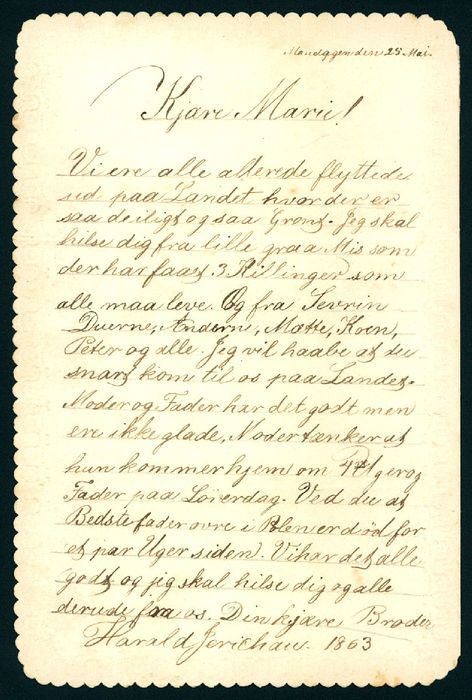 Mandagen den 25 Mai.
Kjære Marie!
Vi ere alle allerede flyttede
ud paa Landet hvor der er
saa deiligt og saa Grönt. Jeg skal
hilse dig fra lille graa Mis som
der har faaet 3 Killinger som
alle maa leve. Og fra Sevrin
Duerne, Ænderne, Mætte, Koen,
Peter og alle. Jeg vil haabe at du
snart kom til os paa Landet.
Moder og Fader har det godt men
ere ikke glade, Moder tænker at
hun kommer hjem om 4 Uger og
Fader paa Löierdag. Ved du at
Bedstefader ovre i Polen er död for
et par Uger siden. Vi har det alle
godt og jig skal hilse dig og alle
derude fra os. Din kjære Broder
Harald Jerichau. 1863